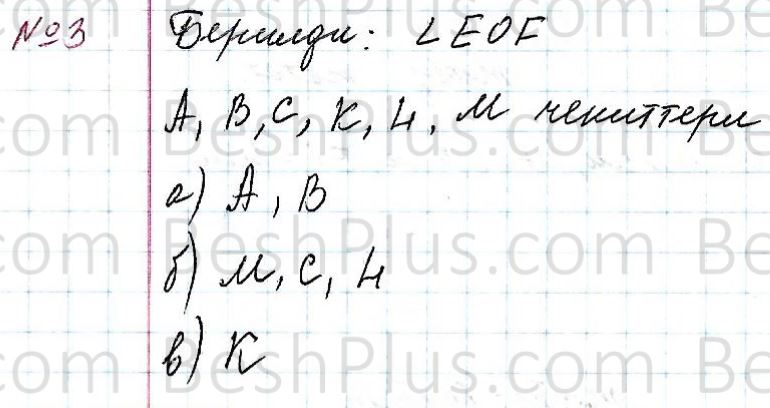 №3 Берилди: ∠EOF
A, B, C, K, H, M чекиттери
а) A, B
б) M, C, H
в) K
BeshPlus.com